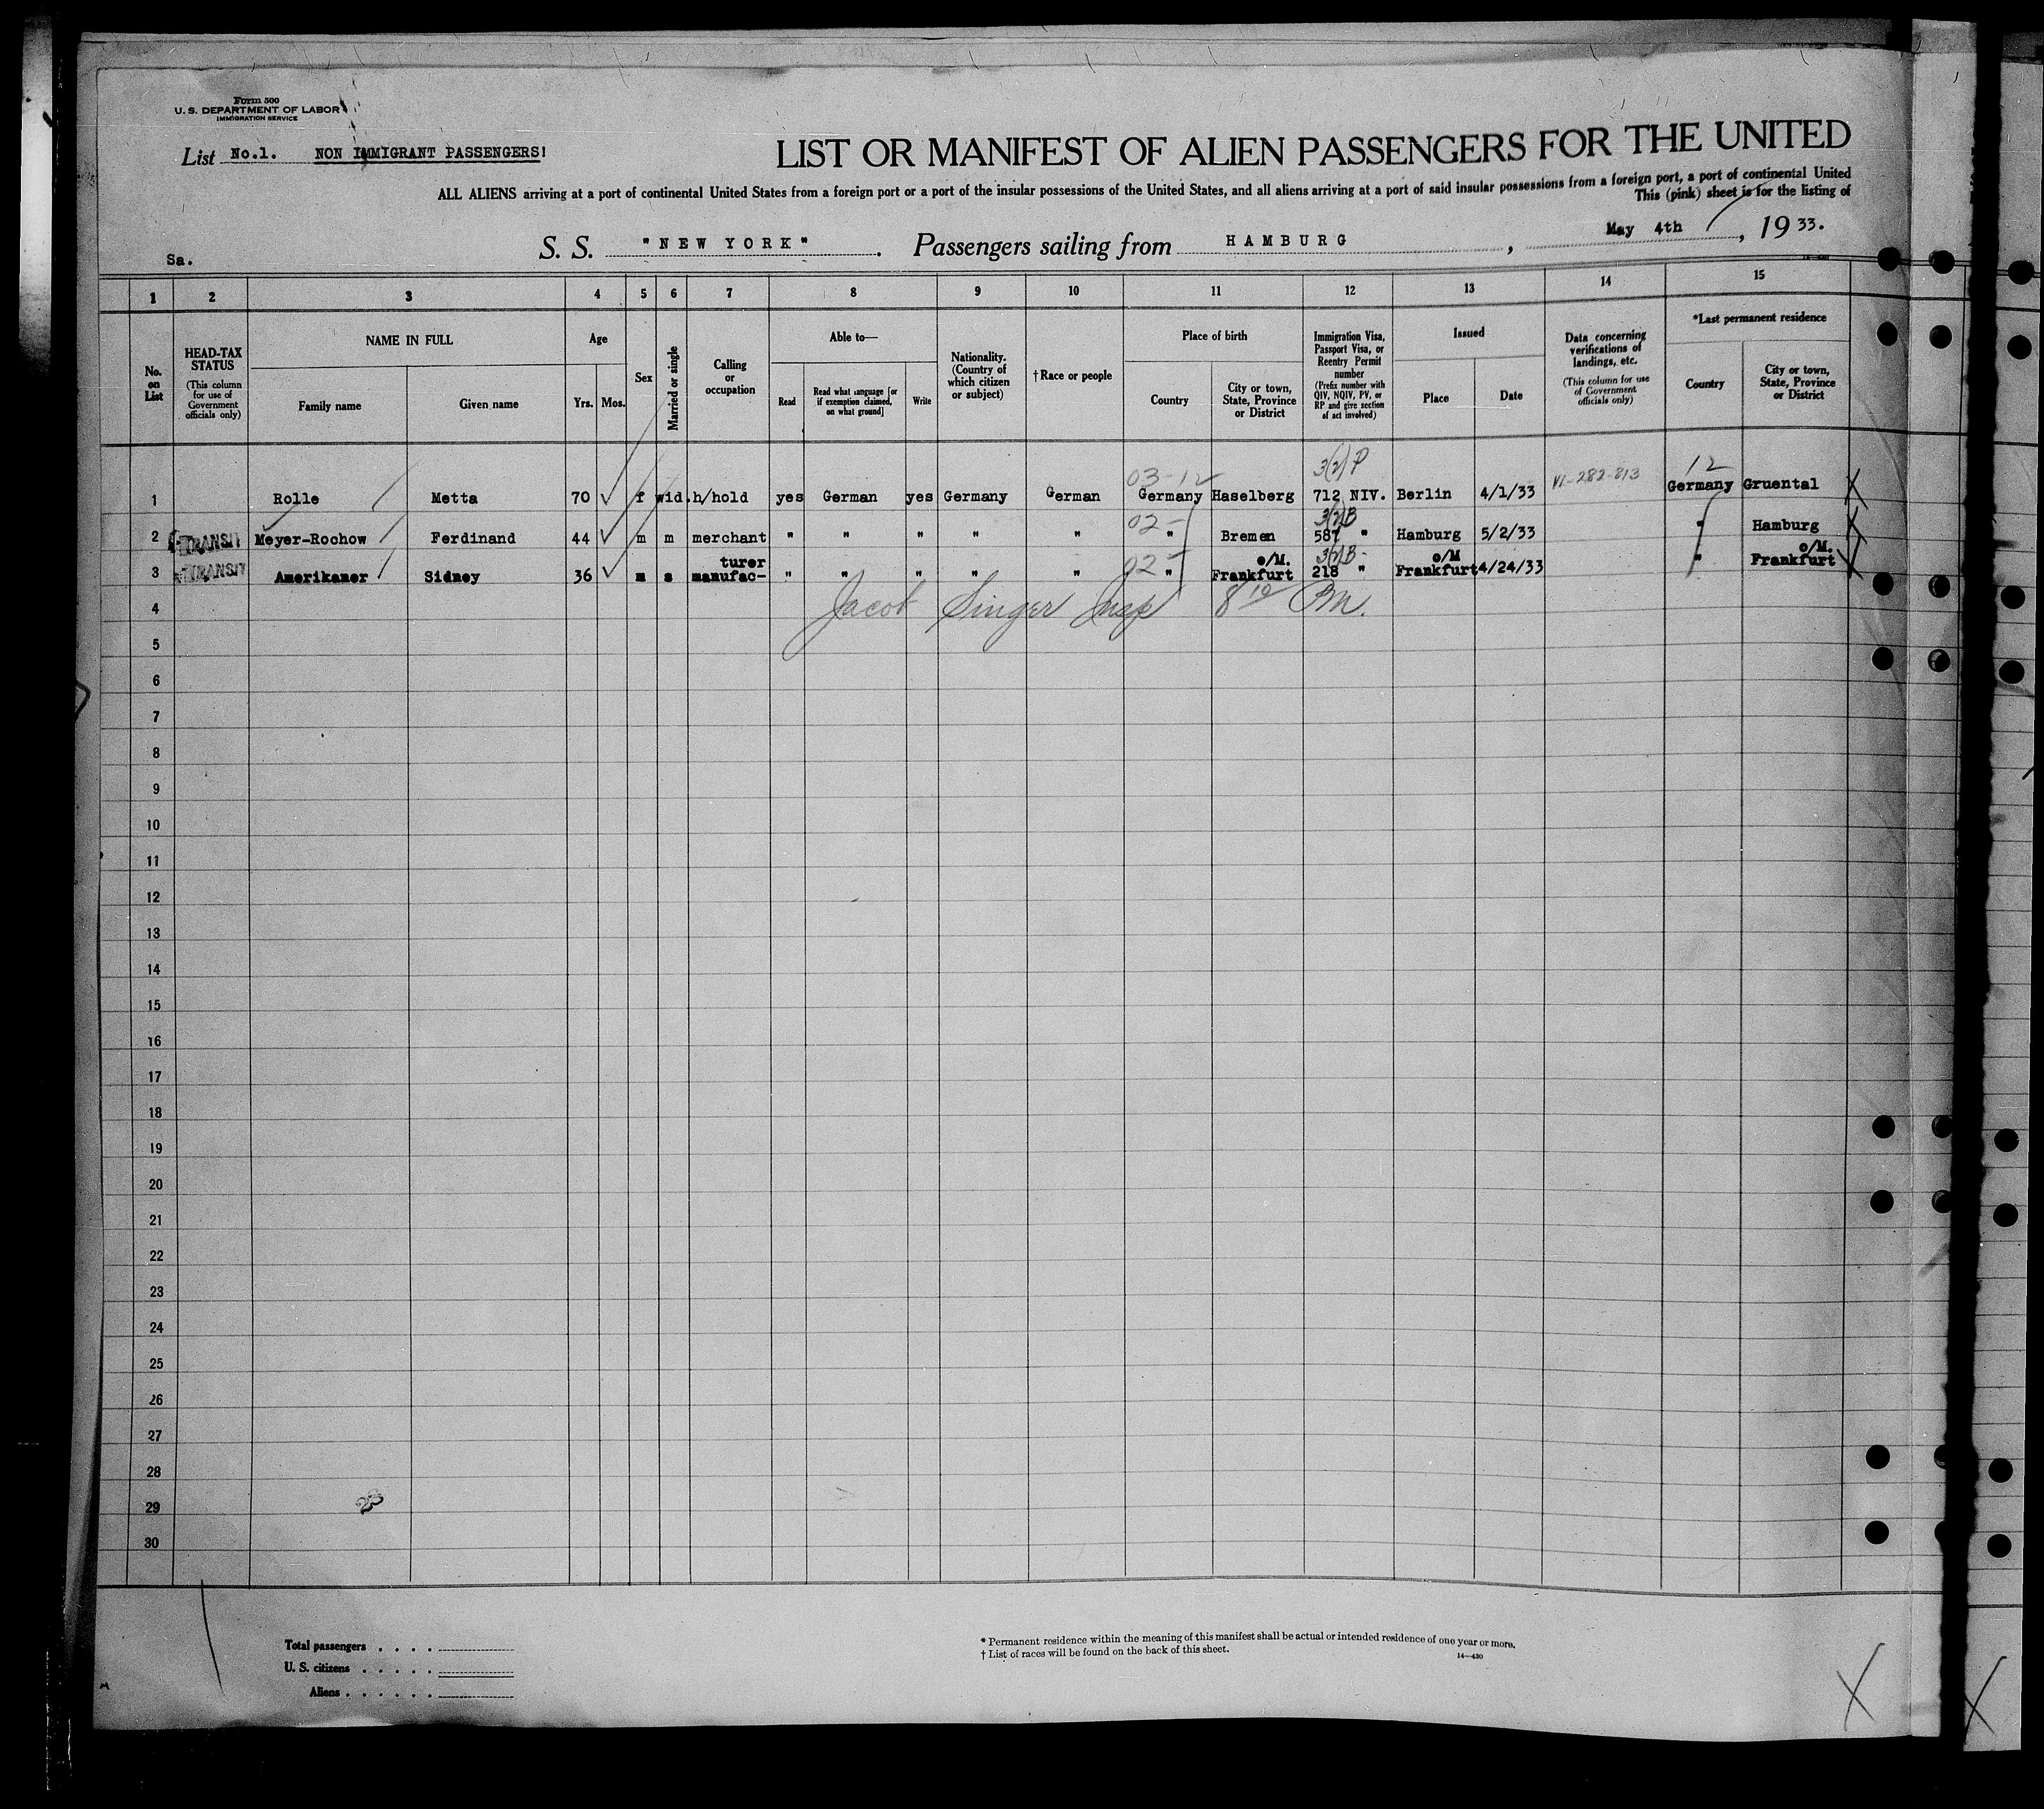 Form 500
U. S. DEPARTMENT OF LABOR
IMMIGRATION SERVICE
List No.1. NON IMMIGRANT PASSENGERS!
LIST OR MANIFEST OF ALIEN PASSENGERS FOR THE UNITED
ALL ALIENS arriving at a port of continental United States from a foreign port or a port of the insular possessions of the United States, and all aliens arriving at a port of said insular possessions from a foreign port, a port of continental United
This (pink) sheet is for the listing of
Sa. S. S. "NEW YORK". Passengers sailing from HAMBURG, May 4th, 1933.
1 2 3 4 5 6 7 8 9 10 11 12 13 14 15
No. on List
HEAD-TAX STATUS (This column for use of Government officials only)
NAME IN FULL
Family name
Given name
Age
Yrs. Mos.
Sex
Married or single
Calling or occupation
Able to—
Read
Read what language [or if exemption claimed, on what ground]
Write
Nationality. (Country of which citizen or subject)
†Race or people
Place of birth
Country
City or town, State, Province or District
Immigration Visa, Passport Visa, or Reentry Permit number (Prefix number with QIV, NQIV, PV, or RP and give section of act involved)
Issued
Place
Date
Data concerning verifications of landings, etc. (This column for use of Government officials only)
*Last permanent residence
Country
City or town, State, Province or District
03-12 3(2)P VL-282-813 12
1 Rolle Metta 70 ✓ f wid. h/hold yes German yes Germany German Germany Haselberg 712 NIV. Berlin 4/1/33 Germany Gruental
02- 3(2)B
2 TRANSIT Meyer-Rochow Ferdinand 44 ✓ m m merchant " " " " " " Bremen 587 " Hamburg 5/2/33 " Hamburg
turer 02- o/M. 3(2)B- o/M o/M.
3 TRANSIT Amerikaner Sidney 36 ✓ m s manufac- " " " " " " Frankfurt 218 " Frankfurt 4/24/33 " Frankfurt
4 Jacob Singer Insp 8 10 PM.
5
6
7
8
9
10
11
12
13
14
15
16
17
18
19
20
21
22
23
24
25
26
27
28
29
30
Total passengers . . . .
U. S. citizens . . . . .
Aliens . . . . . .
* Permanent residence within the meaning of this manifest shall be actual or intended residence of one year or more.
† List of races will be found on the back of this sheet.
14—430